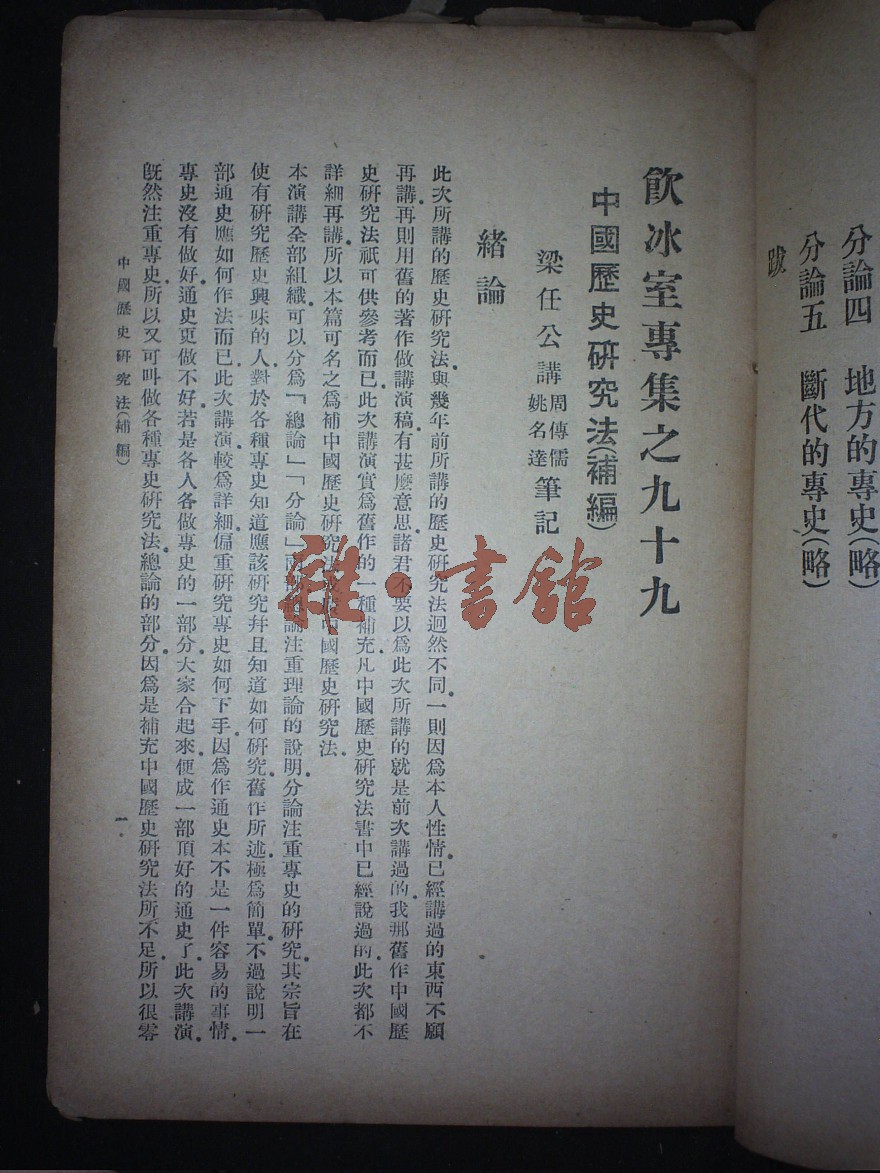 分論四　地方的專史(略)
分論五　斷代的專史(略)
跋
飲冰室專集之九十九
中國歷史研究法(補編)
梁任公講　周傳儒　姚名達　筆記
緒論
此次所講的歷史研究法。與幾年前所講的歷史研究法迥然不同。一則因爲本人性情。已經講過的東西不願
再講。再則用舊的著作做講演稿。有甚麼意思。諸君不要以爲此次所講的就是前次講過的。我那舊作中國歷
史研究法祇可供參考而已。此次講演實爲舊作的一種補充。凡中國歷史研究法書中已經說過的。此次都不
詳細再講。所以本篇可名之爲補中國歷史研究法中國歷史研究法。
本演講全部組織。可以分爲「總論」「分論」兩部。總論注重理論的說明。分論注重專史的研究。其宗旨在
使有研究歷史興味的人。對於各種專史知道應該研究幷且知道如何研究。舊作所述。極爲簡單。不過說明一
部通史應如何作法而已。此次講演。較爲詳細。偏重研究專史如何下手。因爲作通史本不是一件容易的事情。
專史沒有做好。通史更做不好。若是各人各做專史的一部分。大家合起來。便成一部頂好的通史了。此次講演。
旣然注重專史。所以又可叫做各種專史研究法。總論的部分。因爲是補充中國歷史研究法所不足。所以很零
中國歷史研究法(補編)
一
雜·書館